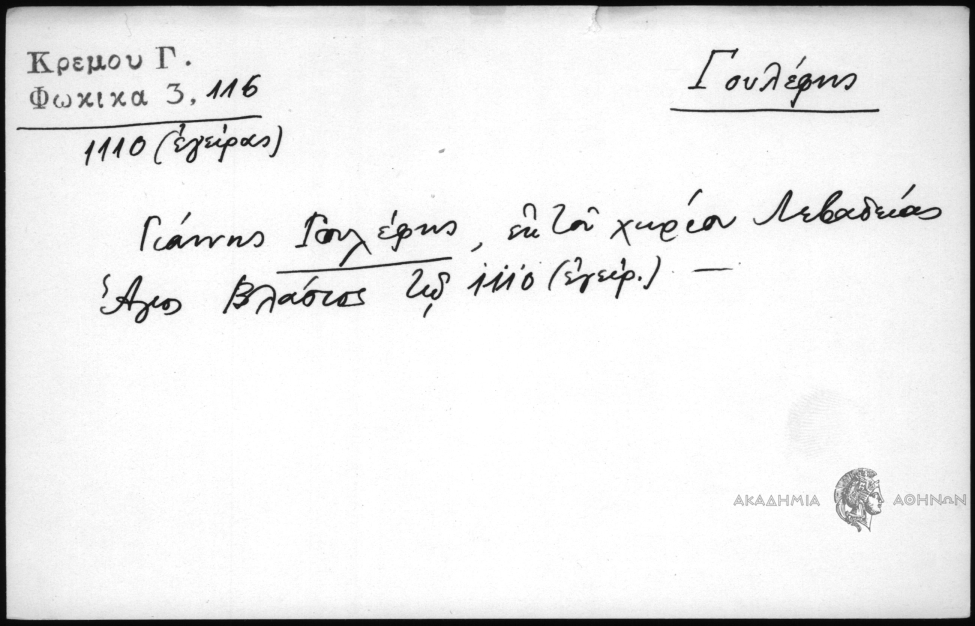 Κρεμου Γ.
Φωκικα 3, 116
1110 (ἐγείρας)
Γουλέφης
Γιάννης Γουλέφης, ἐκ τοῦ χωρίου Λεβαδείας
Ἅγιος Βλάσιος τῷ 1110 (ἐγείρ.) —
ΑΚΑΔΗΜΙΑ ΑΘΗΝΩΝ